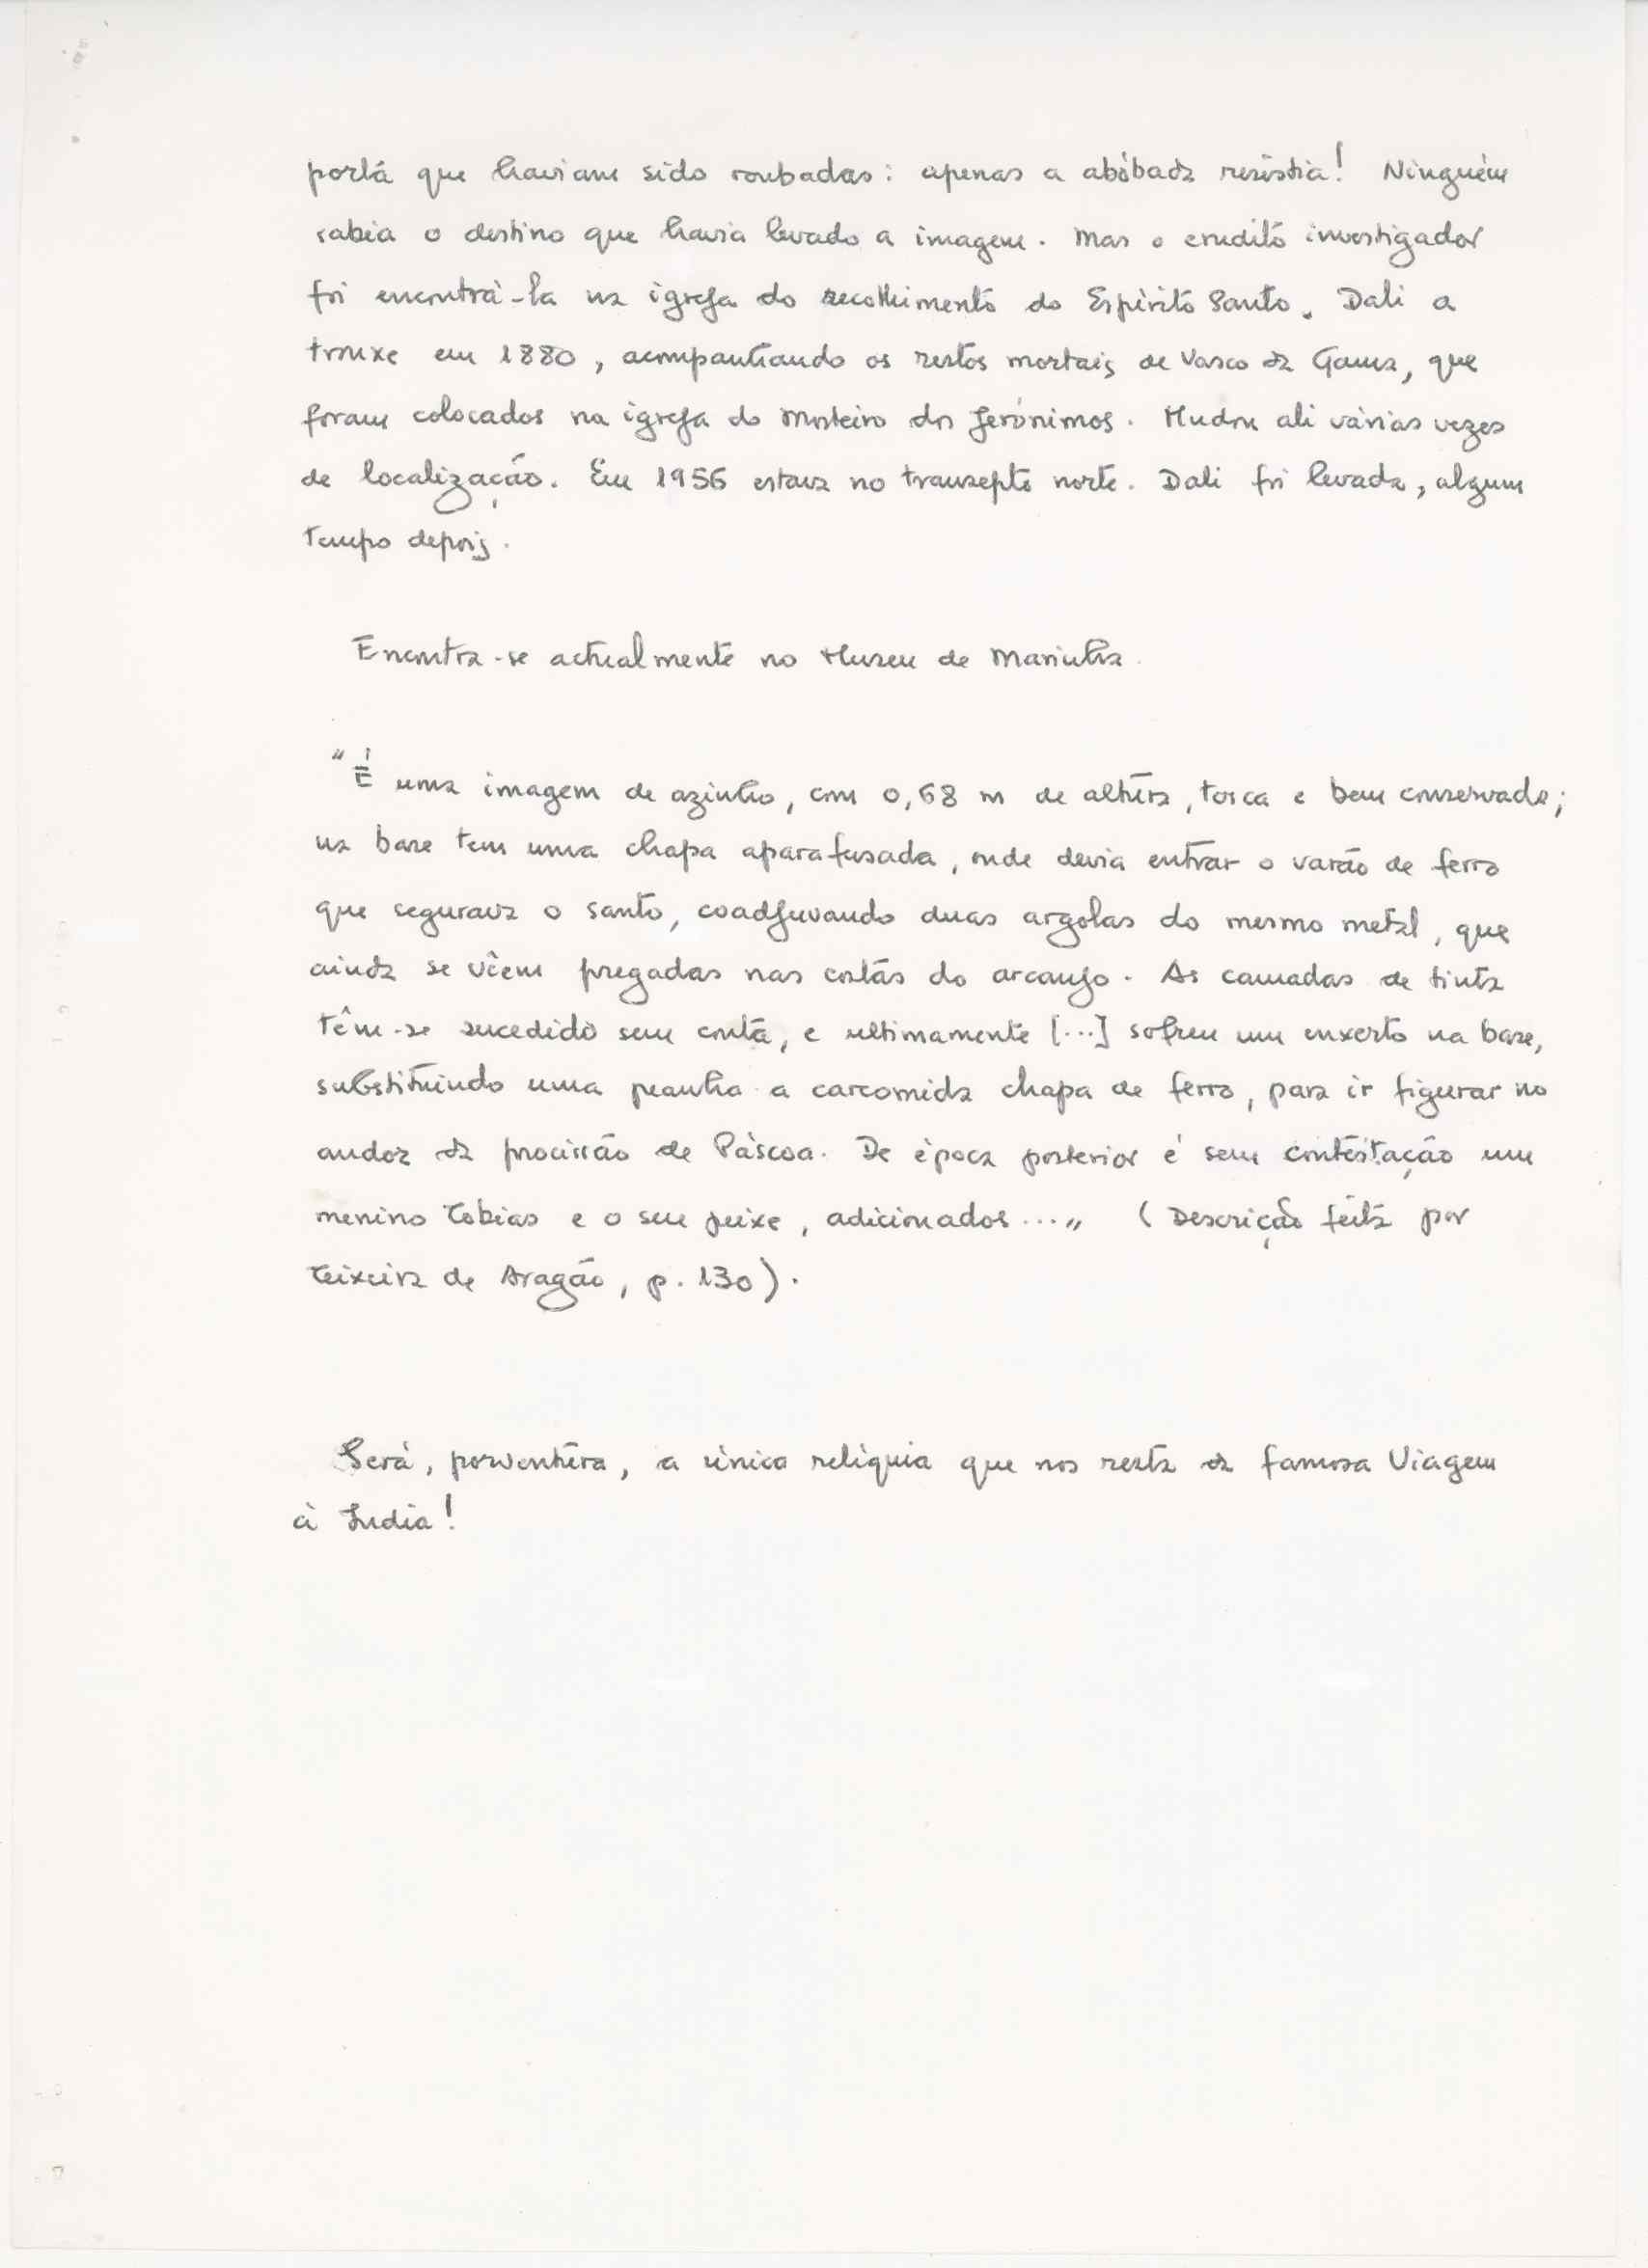 porta que haviam sido roubadas: apenas a abóbada resistia! Ninguém
sabia o destino que havia levado a imagem. Mas o erudito investigador
foi encontrá-la na igreja do recolhimento do Espírito Santo. Dali a
trouxe em 1880, acompanhando os restos mortais de Vasco da Gama, que
foram colocados na igreja do Mosteiro dos Jerónimos. Mudou ali várias vezes
de localização. Em 1956 estava no transepto norte. Dali foi levada, algum
tempo depois.
Encontra-se actualmente no Museu de Marinha.
"É uma imagem de azinho, com 0,68 m de altura, tosca e bem conservada;
na base tem uma chapa aparafusada, onde devia entrar o varão de ferro
que segurava o santo, coadjuvando duas argolas do mesmo metal, que
ainda se vêem pregadas nas costas do arcanjo. As camadas de tinta
têm-se sucedido sem conta, e ultimamente [...] sofreu um enxerto na base,
substituindo uma peanha a carcomida chapa de ferro, para ir figurar no
andor da procissão de Páscoa. De época posterior é sem contestação um
menino Tobias e o seu peixe, adicionados..." (Descrição feita por
Teixeira de Aragão, p. 130).
Será, porventura, a única relíquia que nos resta da famosa Viagem
à Índia!